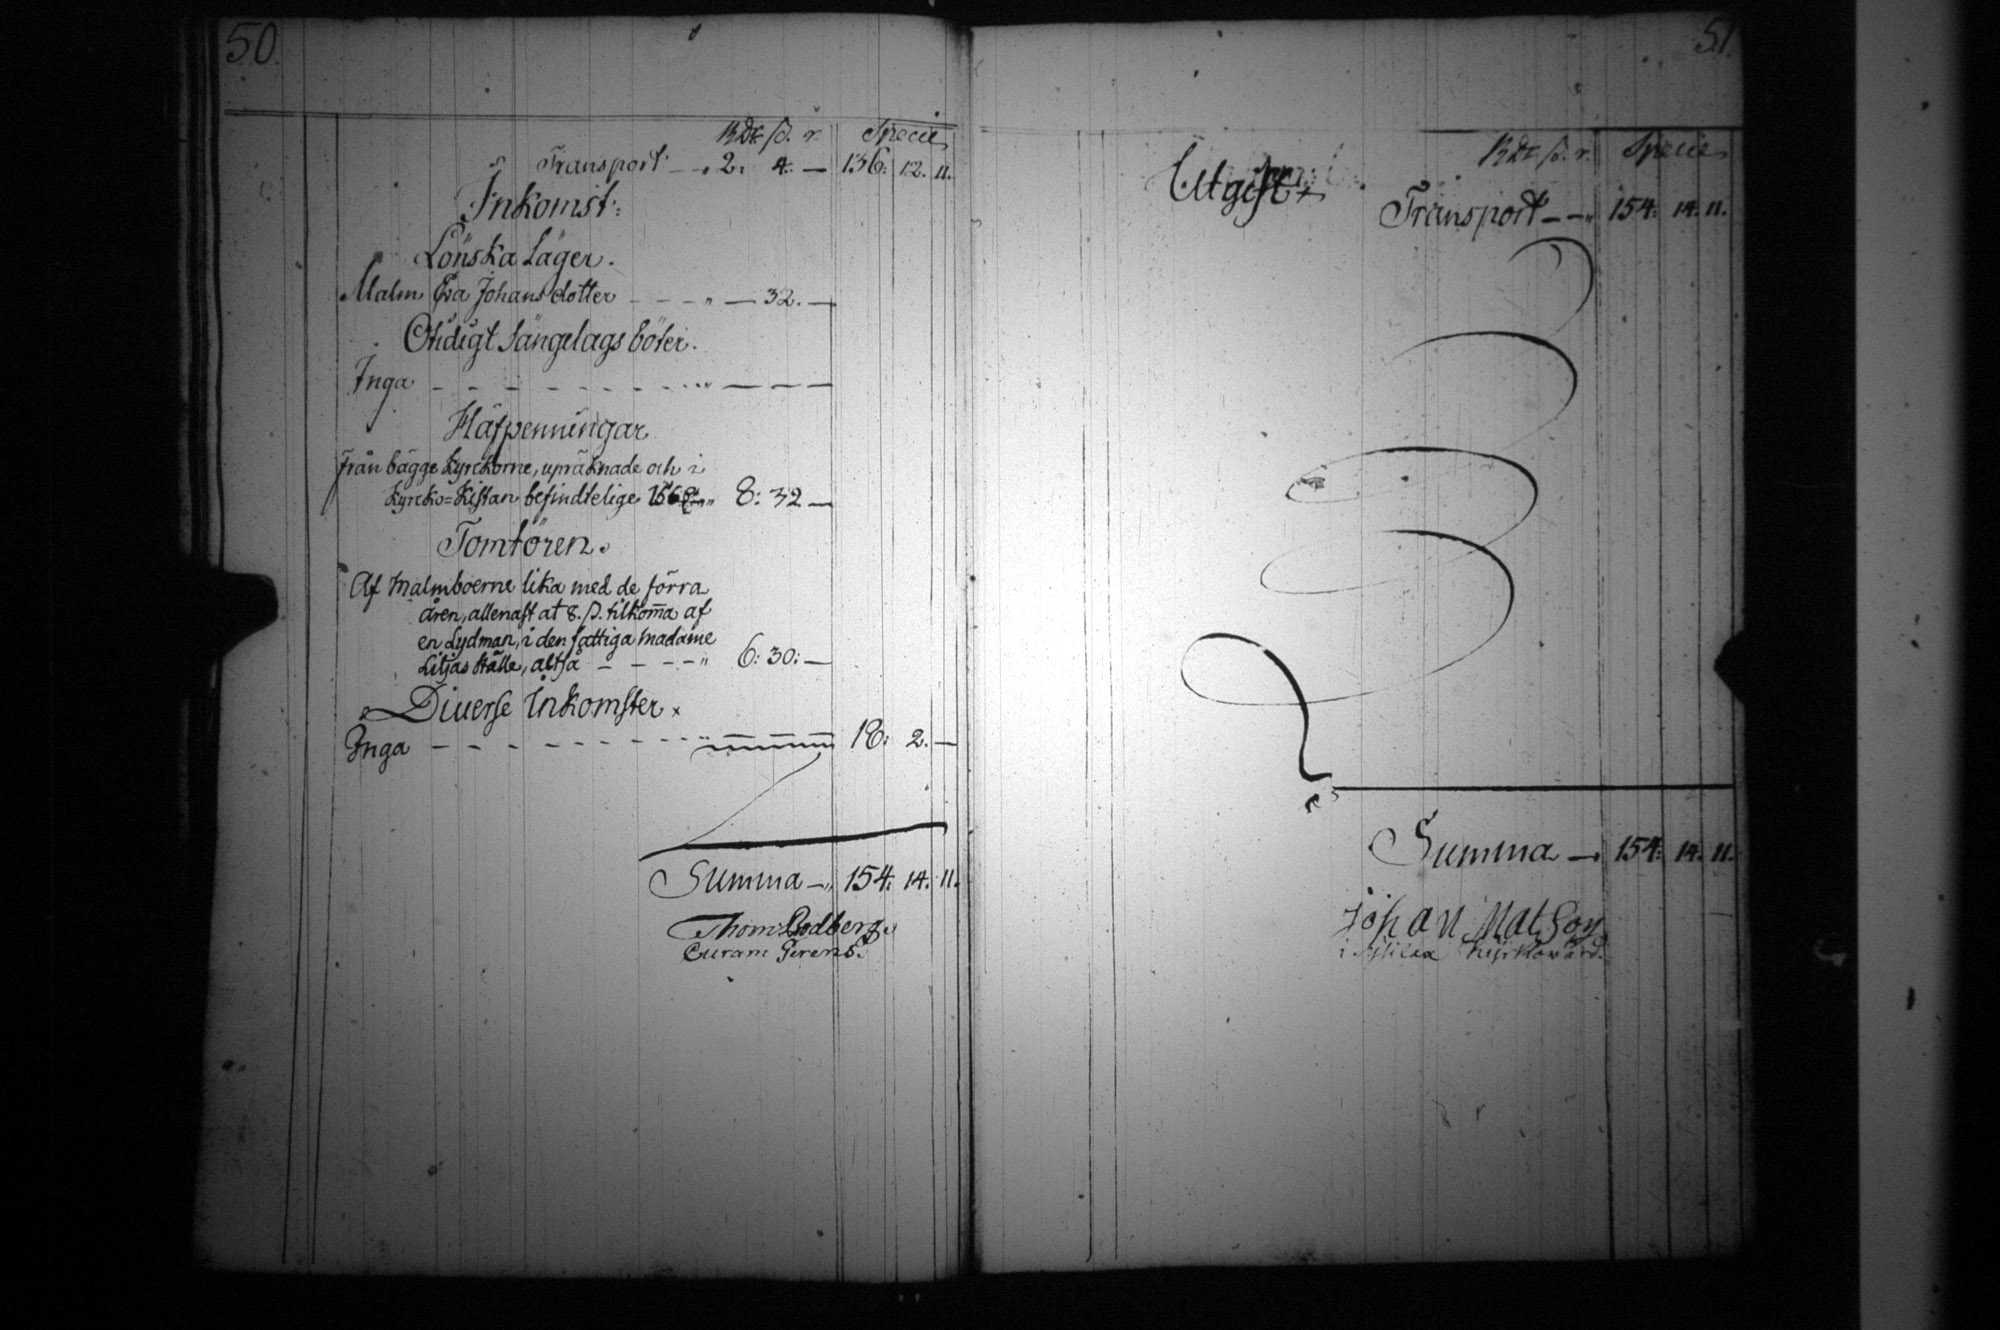 50.
Rdr ß. r. Specie
Transport — 2: 4: — 136: 12. 11.
Inkomst:
Lönska läger.
Malm Eva Johansdotter - - - „ — 32. —
Otidigt sängelags böter.
Inga - - - - - - - - „ — — —
Håfpenningar
Från bägge kyrckorne, upräknade och i
kyrcko=Kistan befindtelige „ 8: 32 —
Tomtören.
Af Malmboerne lika med de förra
åren, allenast at 8. ß. tilkom̄a af
en Lydman, i den fattiga Madame
Litjas ställe, altså - - - - „ 6: 30: —
Diverse Inkomster
Inga - - - - - - - - „ — — — 18: 2. —
Summa — „ 154: 14. 11.
Thom: Rodberg.
Curam Gerens.
51.
Rdr ß. r. Specie
Utgift
Transport — — „ 154: 14. 11.
Summa — 154: 14. 11.
Johan Matson
i kyrkovärd.